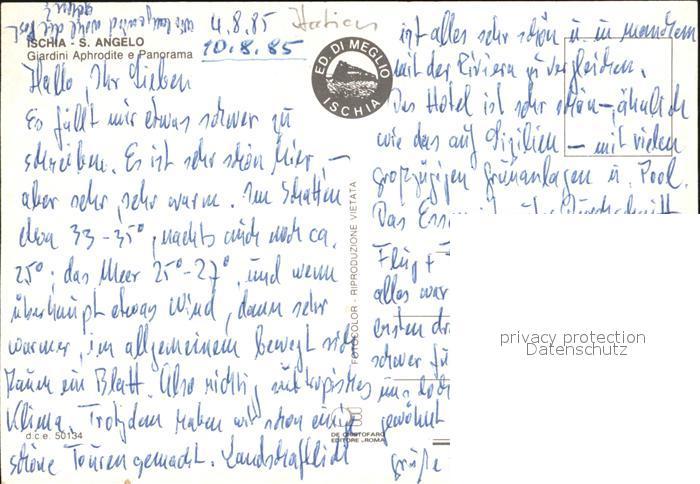 4.8.85 Italien
10.8.85
ISCHIA - S. ANGELO
Giardini Aphrodite e Panorama
ED. DI MEGLIO
ISCHIA
Hallo, Ihr Lieben
Es fällt mir etwas schwer zu
schreiben. Es ist sehr schön hier, –
aber sehr, sehr warm. Im Schatten
etwa 33-35°, nachts auch noch ca.
25°; das Meer 25°-27°, und wenn
überhaupt etwas Wind, dann sehr
warmer, im allgemeinem bewegt sich
kaum ein Blatt. Also richtig subtropisches
Klima. Trotzdem haben wir schon einige
schöne Touren gemacht. Landschaftlich
d.c.e. 50134
FOTOCOLOR - RIPRODUZIONE VIETATA
EDITORE - ROMA
ist alles sehr schön u. in manchem
mit der Riviera zu vergleichen.
Das Hotel ist sehr schön – ähnlich
wie das auf Sizilien – mit vielen
großzügigen Grünanlagen u. Pool.
Das Ess
Flug +
alles war
ersten
schwer
uns doch
gewöhnt
Grüße
privacy protection
Datenschutz